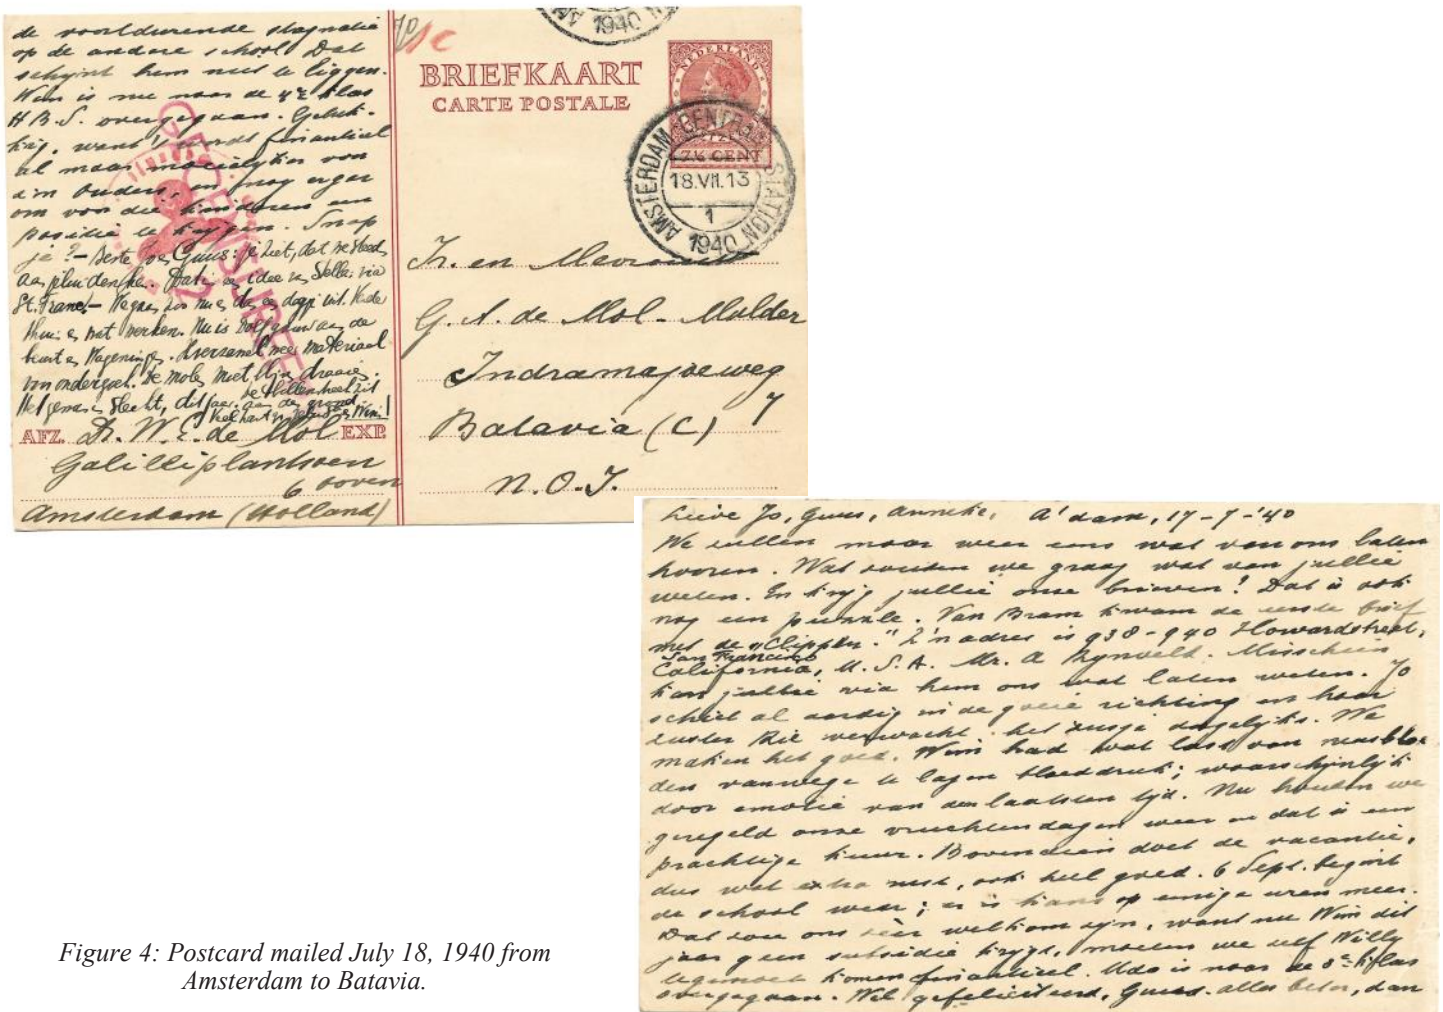 de voortdurende stagnatie
op de andere school. Dat
schijnt hem niet te liggen.
Wim is nu naar de 4e klas
H.B.S. overgegaan. Geluk-
kig, want 't wordt financieel
al maar moeielijker voor
d'n Ouders, en nog erger
om voor die kinderen een
positie te krijgen. Snap
je? – Beste Jo en Guus: je ziet, dat we steeds
aan jullie denken. idee van Stella: via
St. Franc. –
thuis en wat werken. Nu is
Wageningen. materiaal
voor onderzoek. De molen moet blijven draaien.
Het gewas slecht, dit jaar. aan de grond.
Veel hartel. Wim!
AFZ. Dr. W. E. de Mol EXP.
Galilëiplantsoen
6 boven
Amsterdam (Holland)
AM 1940 N
BRIEFKAART
CARTE POSTALE
NEDERLAND
7½ CENT
AMSTERDAM CENTRAAL STATION
18.VII.13
1
1940
GECENSUREERD
2
Ir. en Mevrouw
G. A. de Mol - Mulder
Indramajoeweg
7
Batavia (C)
N.O.I.
Lieve Jo, Guus, Anneke, A'dam, 17-7-'40
We zullen maar weer eens wat van ons laten
hooren. Wat zouden we graag wat van jullie
weten. En krijg jullie onze brieven? Dat is ook
nog een puzzle. Van Bram kwam de eerste brief
met de "Clipper." Z'n adres is 938-940 Howardstreet,
San Francisco
California, U.S.A. Mr. A Rynveld. Misschien
kan jullie via hem ons wat laten weten. Jo
schiet al aardig in de goeie richting en haar
zuster Rie verwacht het zusje dagelijks. We
maken het goed. Wim had wat last van neusbloe-
den vanwege te lagen bloeddruk; waarschijnlijk
door emotie van den laatsten tijd. Nu houden we
geregeld onze vruchtendagen weer en dat is een
prachtige kuur. Bovendien doet de vacantie,
dus wat extra rust, ook heel goed. 6 Sept. begint
de school weer; er is kans op eenige uren meer.
Dat zou ons zéér welkom zijn, want nu Wim dit
jaar geen subsidie krijgt, moeten we zelf Willy
tegemoet komen financieel. Udo is naar de 3e klas
overgegaan. Wel gefeliciteerd, Guus. alles beter, dan
Figure 4: Postcard mailed July 18, 1940 from
Amsterdam to Batavia.